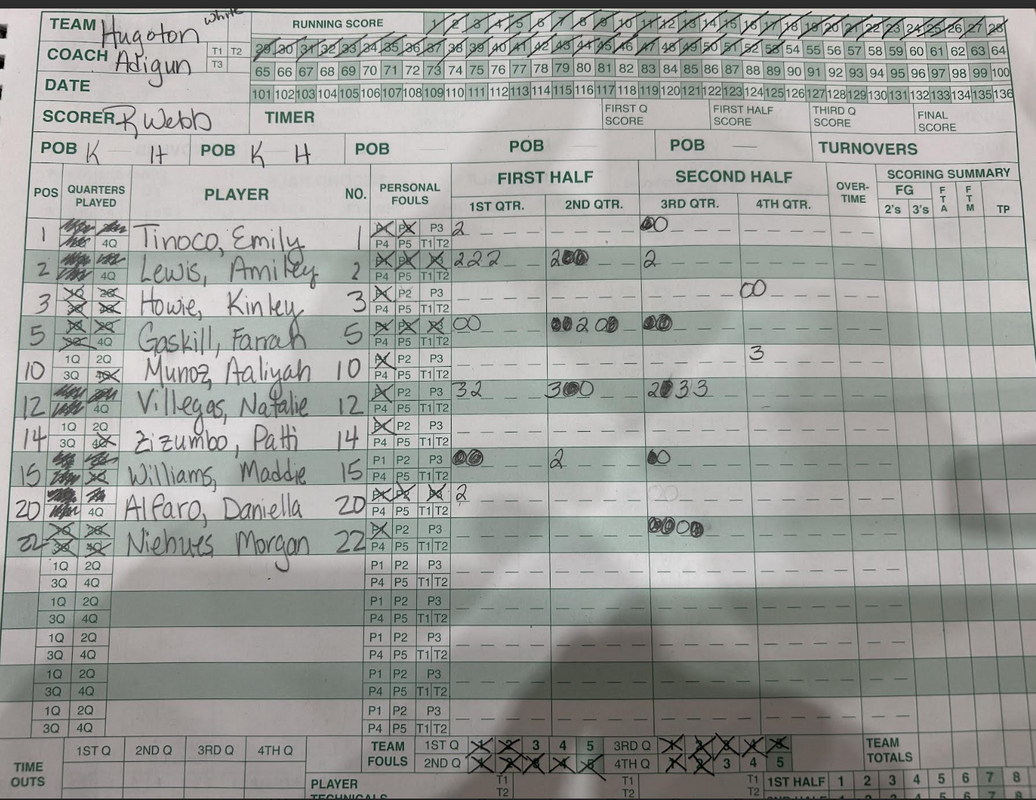 TEAM Hugoton White RUNNING SCORE 1 2 3 4 5 6 7 8 9 10 11 12 13 14 15 16 17 18 19 20 21 22 23 24 25 26 27 28
COACH Adigun T1 T2 T3 29 30 31 32 33 34 35 36 37 38 39 40 41 42 43 44 45 46 47 48 49 50 51 52 53 54 55 56 57 58 59 60 61 62 63 64
65 66 67 68 69 70 71 72 73 74 75 76 77 78 79 80 81 82 83 84 85 86 87 88 89 90 91 92 93 94 95 96 97 98 99 100
DATE 101 102 103 104 105 106 107 108 109 110 111 112 113 114 115 116 117 118 119 120 121 122 123 124 125 126 127 128 129 130 131 132 133 134 135 136
SCORER R, Webb TIMER FIRST Q SCORE FIRST HALF SCORE THIRD Q SCORE FINAL SCORE
POB K H POB K H POB POB POB TURNOVERS
POS QUARTERS PLAYED PLAYER NO. PERSONAL FOULS FIRST HALF SECOND HALF OVER-TIME SCORING SUMMARY
1ST QTR. 2ND QTR. 3RD QTR. 4TH QTR. FG 2's 3's FTA FTM TP
1 4Q Tinoco, Emily 1 P3 P4 P5 T1 T2 2
2 4Q Lewis, Amiley 2 P4 P5 T1 T2 222 2 2
3 Howie, Kinley 3 P2 P3 P4 P5 T1 T2 00
5 4Q Gaskill, Farrah 5 P4 P5 T1 T2 00 2
10 1Q 2Q 3Q 4Q Munoz, Aaliyah 10 P2 P3 P4 P5 T1 T2 3
12 4Q Villegas, Natalie 12 P2 P3 P4 P5 T1 T2 32 3 2 33
14 1Q 2Q 3Q 4Q Zizumbo, Patti 14 P2 P3 P4 P5 T1 T2
15 Williams, Maddie 15 P1 P2 P3 P4 P5 T1 T2 2
20 4Q Alfaro, Daniella 20 P4 P5 T1 T2 2
22 Niehues Morgan 22 P2 P3 P4 P5 T1 T2
1Q 2Q P1 P2 P3
3Q 4Q P4 P5 T1 T2
1Q 2Q P1 P2 P3
3Q 4Q P4 P5 T1 T2
1Q 2Q P1 P2 P3
3Q 4Q P4 P5 T1 T2
1Q 2Q P1 P2 P3
3Q 4Q P4 P5 T1 T2
1Q 2Q P1 P2 P3
3Q 4Q P4 P5 T1 T2
TIME OUTS 1ST Q 2ND Q 3RD Q 4TH Q TEAM FOULS 1ST Q 1 2 3 4 5 3RD Q 1 2 3 4 5 TEAM TOTALS
2ND Q 1 2 3 4 5 4TH Q 1 2 3 4 5
PLAYER T1 T2 T1 T2 T1 T2 1ST HALF 1 2 3 4 5 6 7 8